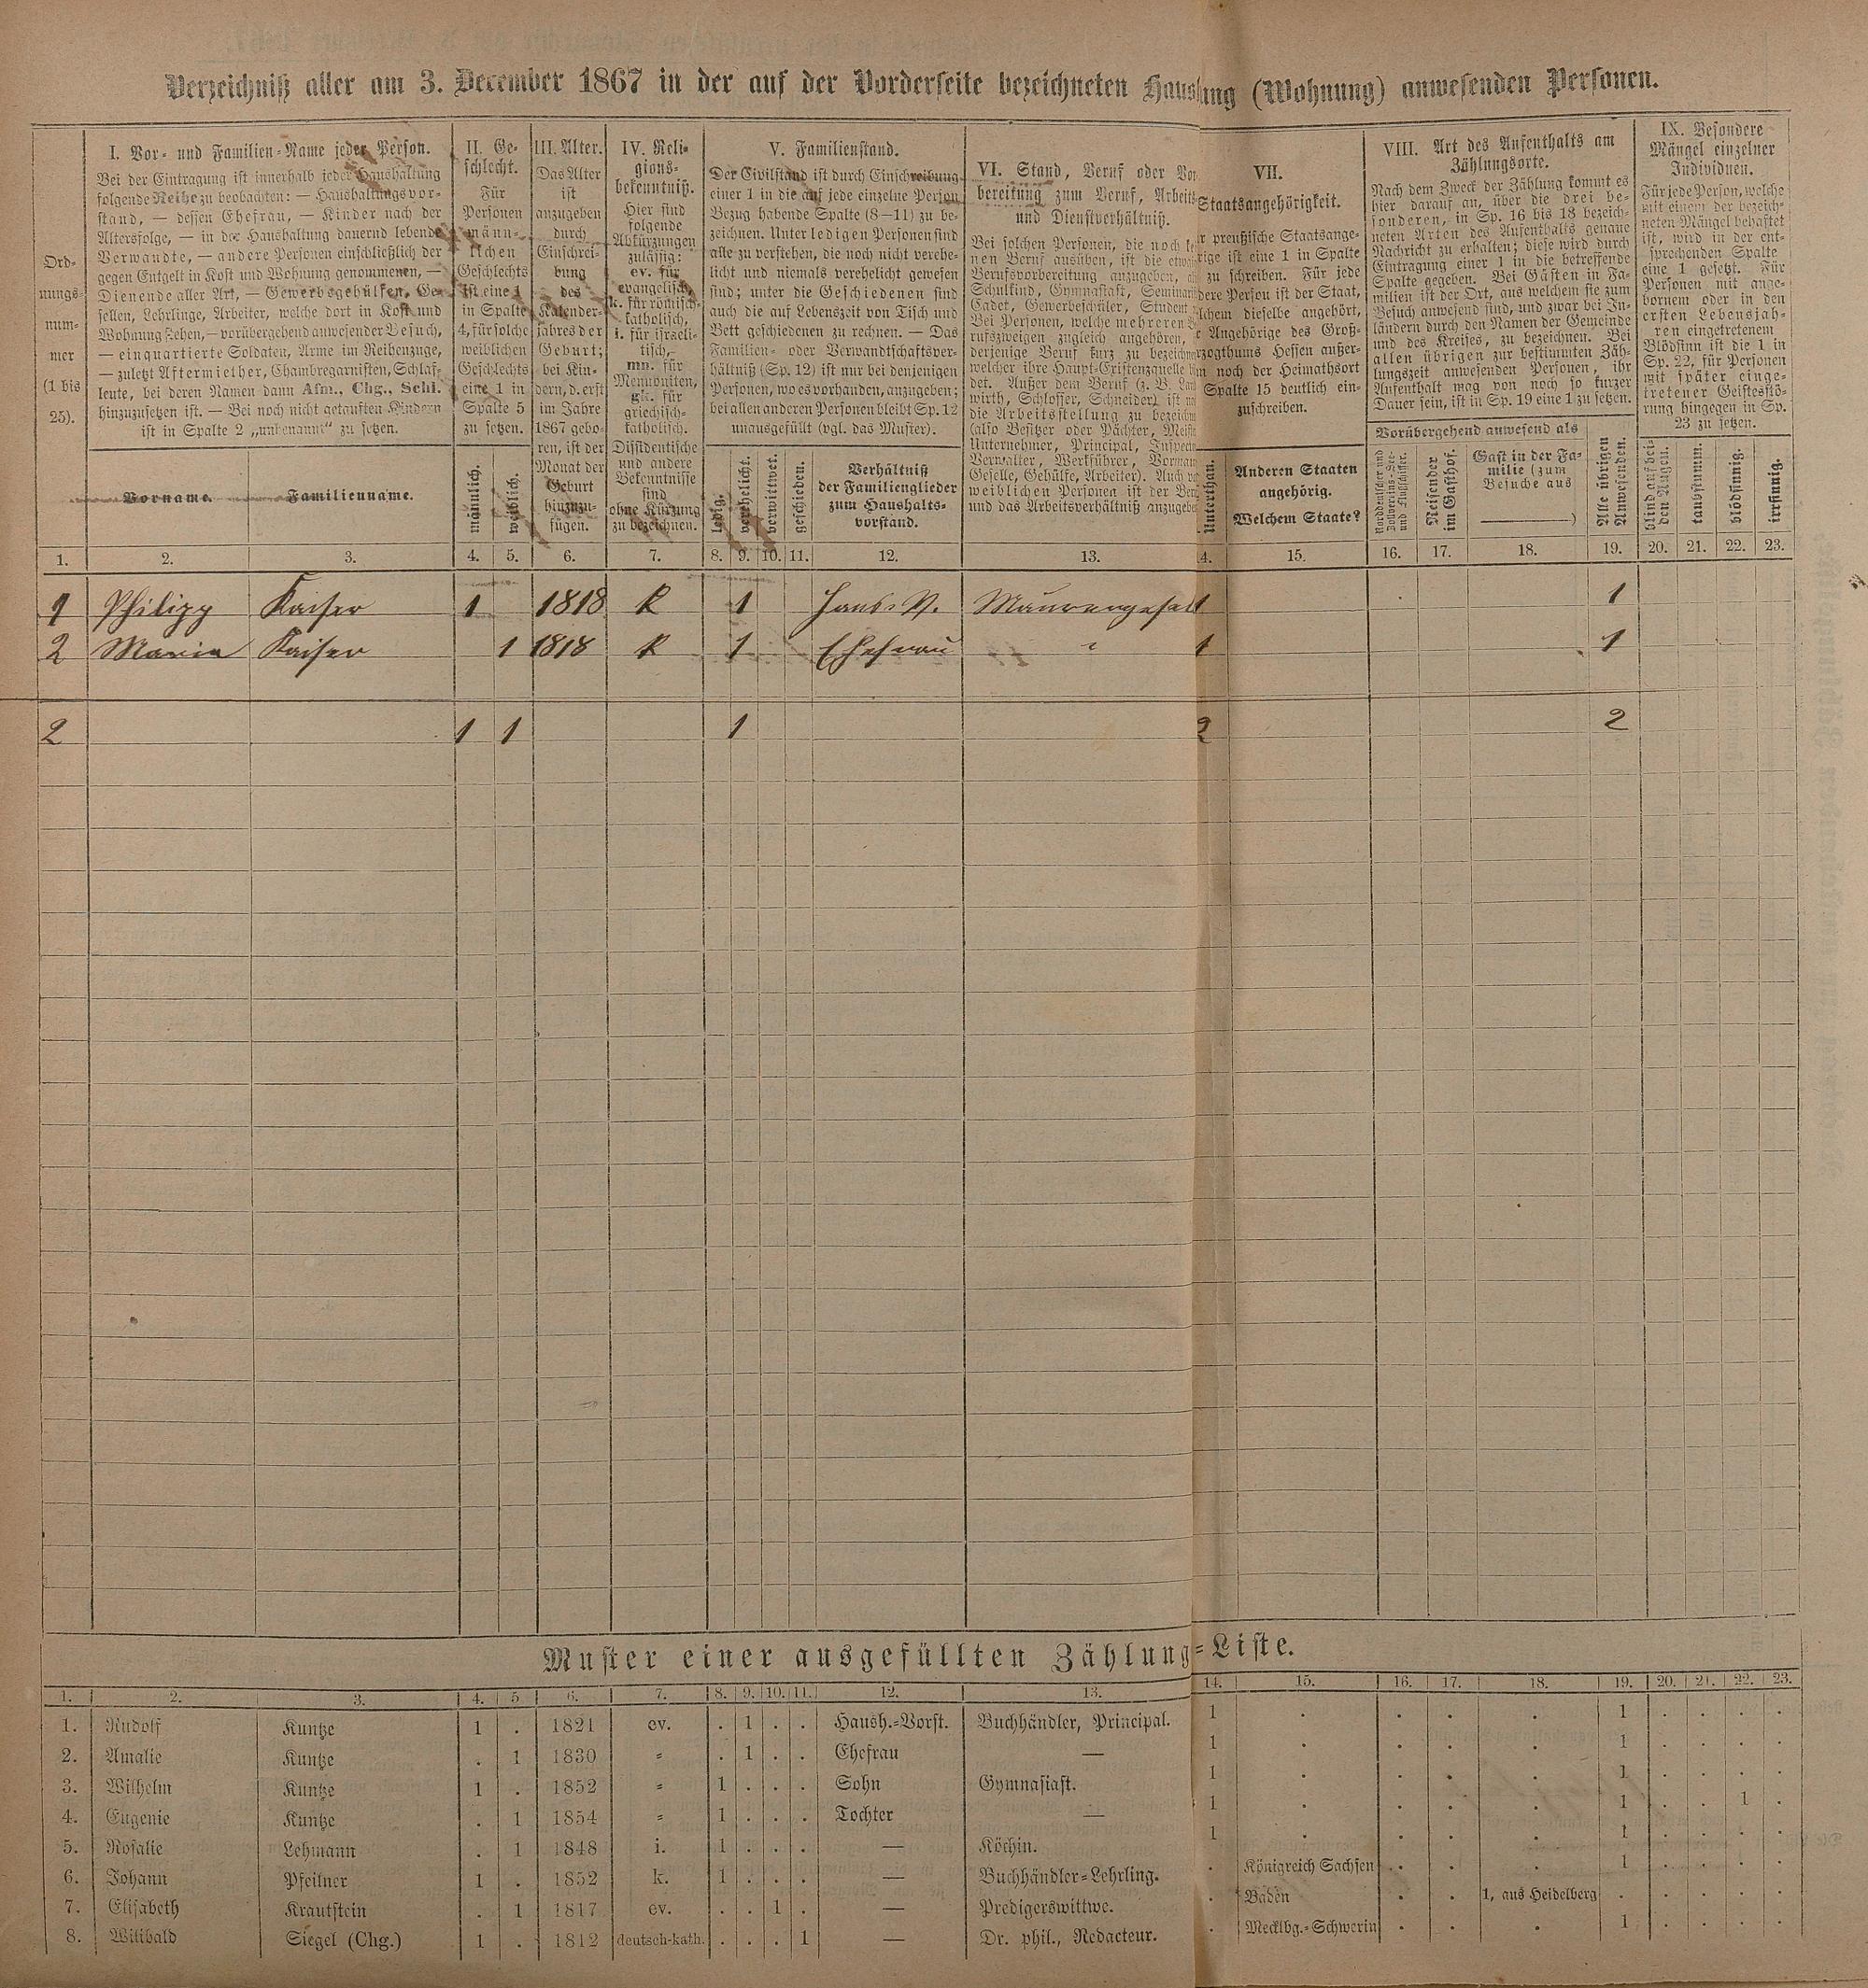 Verzeichniß aller am 3. December 1867 in der auf der Vorderseite bezeichneten Haushaltung (Wohnung) anwesenden Personen.
Ord-
nungs-
num-
mer
(1 bis
25).
I. Vor- und Familien-Name jeder Person.
Bei der Eintragung ist innerhalb jeder Haushaltung
folgende Reihe zu beobachten: — Haushaltungsvor-
stand, — dessen Ehefrau, — Kinder nach der
Altersfolge, — in der Haushaltung dauernd lebende
Verwandte, — andere Personen einschließlich der
gegen Entgelt in Kost und Wohnung genommenen, —
Dienende aller Art, — Gewerbsgehülfen, Ge-
sellen, Lehrlinge, Arbeiter, welche dort in Kost und
Wohnung stehen, — vorübergehend anwesender Besuch,
— einquartierte Soldaten, Arme im Reihenzuge,
— zuletzt Aftermiether, Chambregarnisten, Schlaf-
leute, bei deren Namen dann Afm., Chg., Schl.
hinzuzusetzen ist. — Bei noch nicht getauften Kindern
ist in Spalte 2 „unbenannt“ zu setzen.
Vorname.
Familienname.
II. Ge-
schlecht.
Für
Personen
männ-
lichen
Geschlechts
ist eine 1
in Spalte
4, für solche
weiblichen
Geschlechts
eine 1 in
Spalte 5
zu setzen.
männlich.
weiblich.
III. Alter.
Das Alter
ist
anzugeben
durch
Einschrei-
bung
des
Kalender-
jahres der
Geburt;
bei Kin-
dern, d. erst
im Jahre
1867 gebo-
ren, ist der
Monat der
Geburt
hinzuzu-
fügen.
IV. Reli-
gions-
bekenntniß.
Hier sind
folgende
Abkürzungen
zulässig:
ev. für
evangelisch,
k. für römisch-
katholisch,
i. für israeli-
tisch,
mn. für
Mennoniten,
gk. für
griechisch-
katholisch.
Dissidentische
und andere
Bekenntnisse
sind
ohne Kürzung
zu bezeichnen.
V. Familienstand.
Der Civilstand ist durch Einschreibung
einer 1 in die auf jede einzelne Person
Bezug habende Spalte (8—11) zu be-
zeichnen. Unter ledigen Personen sind
alle zu verstehen, die noch nicht verehe-
licht und niemals verehelicht gewesen
sind; unter die Geschiedenen sind
auch die auf Lebenszeit von Tisch und
Bett geschiedenen zu rechnen. — Das
Familien- oder Verwandtschaftsver-
hältniß (Sp. 12) ist nur bei denjenigen
Personen, wo es vorhanden, anzugeben;
bei allen anderen Personen bleibt Sp. 12
unausgefüllt (vgl. das Muster).
ledig.
verehelicht.
verwittwet.
geschieden.
Verhältniß
der Familienglieder
zum Haushalts-
vorstand.
VI. Stand, Beruf oder Vor-
bereitung zum Beruf, Arbeits-
und Dienstverhältniß.
Bei solchen Personen, die noch
nen Beruf ausüben, ist die
Berufsvorbereitung anzugeben,
Schulkind, Gymnasiast,
Cadet, Gewerbeschüler, Student
Bei Personen, welche mehreren
rufszweigen zugleich angehören,
derjenige Beruf kurz zu
welcher ihre Haupt-Existenzquelle
det. Außer dem Beruf (z. B.
wirth, Schlosser, Schneider) ist
die Arbeitsstellung zu
(also Besitzer oder Pächter,
Unternehmer, Principal,
Verwalter, Werkführer,
Geselle, Gehülfe, Arbeiter). Auch
weiblichen Personen ist der
und das Arbeitsverhältniß
VII.
Staatsangehörigkeit.
preußische Staatsange-
rige ist eine 1 in Spalte
zu schreiben. Für jede
dere Person ist der Staat,
dieselbe angehört,
Angehörige des Groß-
Hessen außer-
noch der Heimathsort
Spalte 15 deutlich ein-
zuschreiben.
Unterthan.
Anderen Staaten
angehörig.
Welchem Staate?
VIII. Art des Aufenthalts am
Zählungsorte.
Nach dem Zweck der Zählung kommt es
hier darauf an, über die drei be-
sonderen, in Sp. 16 bis 18 bezeich-
neten Arten des Aufenthalts genaue
Nachricht zu erhalten; diese wird durch
Eintragung einer 1 in die betreffende
Spalte gegeben. Bei Gästen in Fa-
milien ist der Ort, aus welchem sie zum
Besuch anwesend sind, und zwar bei In-
ländern durch den Namen der Gemeinde
und des Kreises, zu bezeichnen. Bei
allen übrigen zur bestimmten Zäh-
lungszeit anwesenden Personen, ihr
Aufenthalt mag von noch so kurzer
Dauer sein, ist in Sp. 19 eine 1 zu setzen.
Vorübergehend anwesend als
Norddeutscher und
Zollvereins-See-
und Flußschiffer.
Reisender
im Gasthof.
Gast in der Fa-
milie (zum
Besuche aus
———)
Alle übrigen
Anwesenden.
IX. Besondere
Mängel einzelner
Individuen.
Für jede Person, welche
mit einem der bezeich-
neten Mängel behaftet
ist, wird in der ent-
sprechenden Spalte
eine 1 gesetzt. Für
Personen mit ange-
bornem oder in den
ersten Lebensjah-
ren eingetretenem
Blödsinn ist die 1 in
Sp. 22, für Personen
mit später einge-
tretener Geistesstö-
rung hingegen in Sp.
23 zu setzen.
blind auf bei-
den Augen.
taubstumm.
blödsinnig.
irrsinnig.
1. 2. 3. 4. 5. 6. 7. 8. 9. 10. 11. 12. 13. 4. 15. 16. 17. 18. 19. 20. 21. 22. 23.
1 Philipp Kaiser 1 1818 k 1 Haus. V. Maurergesell 1 1
2 Maria Kaiser 1 1818 k 1 Ehefrau " 1 1
2 1 1 1 2 2
Muster einer ausgefüllten Zählung-Liste.
1. 2. 3. 4. 5 6. 7. 8. 9. 10. 11. 12. 13. 14. 15. 16. 17. 18. 19. 20. 21. 22. 23.
1. Rudolf Kuntze 1 . 1821 ev. . 1 . . Haush.-Vorst. Buchhändler, Principal. 1 . . . . 1 . . . .
2. Amalie Kuntze . 1 1830 = . 1 . . Ehefrau — 1 . . . . 1 . . . .
3. Wilhelm Kuntze 1 . 1852 = 1 . . . Sohn Gymnasiast. 1 . . . . 1 . . . .
4. Eugenie Kuntze . 1 1854 = 1 . . . Tochter — 1 . . . . 1 . . 1 .
5. Rosalie Lehmann . 1 1848 i. 1 . . . — Köchin. 1 . . . . 1 . . . .
6. Johann Pfeilner 1 . 1852 k. 1 . . . — Buchhändler-Lehrling. . Königreich Sachsen . . . 1 . . . .
7. Elisabeth Krautstein . 1 1817 ev. . . 1 . — Predigerswittwe. . Baden . . 1, aus Heidelberg . . . . .
8. Wilibald Siegel (Chg.) 1 . 1812 deutsch-kath. . . . 1 — Dr. phil., Redacteur. . Mecklbg.-Schwerin . . . 1 . . . .